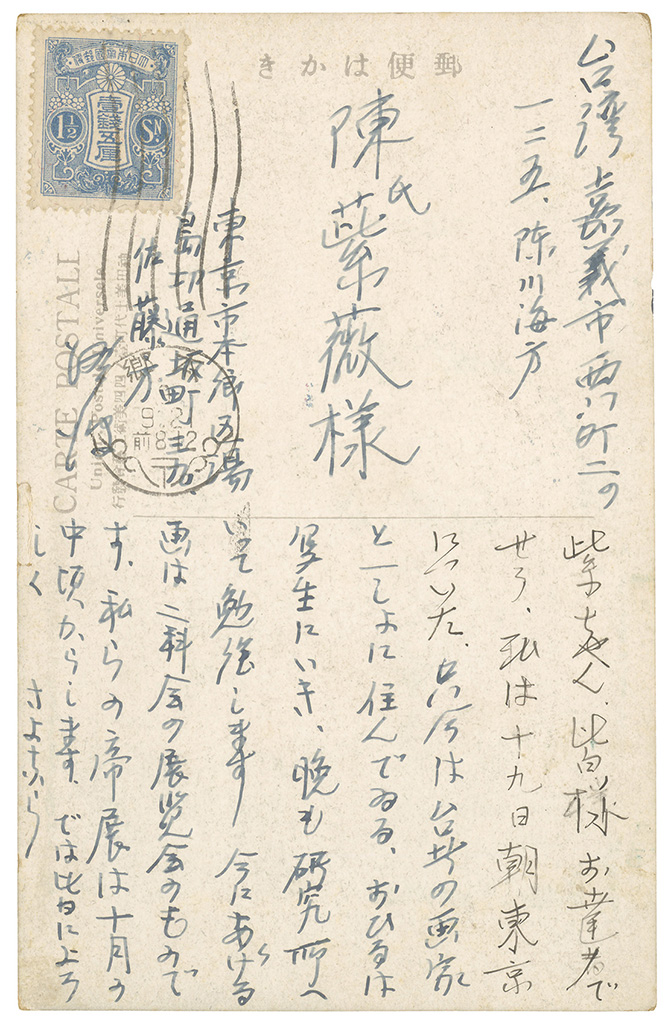 郵便はかき
大日本帝國郵便
壹錢五厘
1½ SN
CARTE POSTALE
Union Postale Universelle
台湾嘉義市西門町二の
一二五、陳川海方
陳氏紫薇様
東京市本郷区湯
島切通坂町三九、
佐藤方
紫ちゃん、皆様お達者で
せう、私は十九日朝東京
についた、只今は台北の画家
と一しよに住んでゐる、おひるは
写生にいき、晩も研究所へ
いって勉強します 今にあげる
画は二科会の展覧会のもので
す、私らの帝展は十月の
中頃からします、では皆によろ
しく さよなら